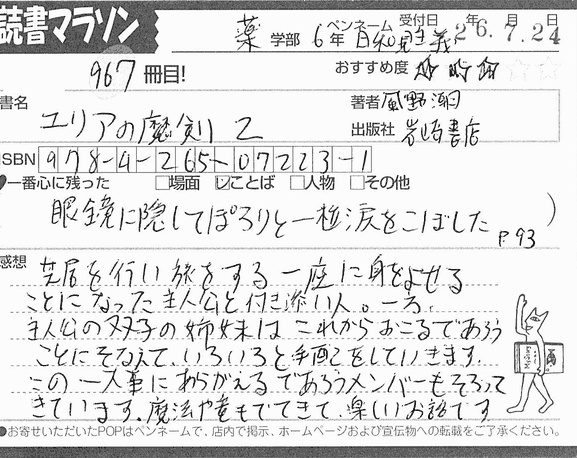 読書マラソン
薬 学部 6年 ペンネーム 日和見主義 受付日 26年7月24日
967 冊目!
おすすめ度 ☆☆☆☆☆
書名 エリアの魔剣 2
著者 風野潮
出版社 岩崎書店
ISBN 978-4-265-07223-1
一番心に残った □場面 ☑ことば □人物 □その他
眼鏡に隠してぽろりと一粒涙をこぼした P.93
感想 芝居を行い旅をする一座に身をよせる
ことになった主人公と付き添い人。一方、
主人公の双子の姉妹は これからおこるであろう
ことにそなえて、いろいろと手配をしていきます。
この一大事にあらがえるであろうメンバーもそろって
きています。魔法や竜もでてきて、楽しいお話です
●お寄せいただいたPOPはペンネームで、店内で掲示、ホームページおよび宣伝物への転載をご了承ください。